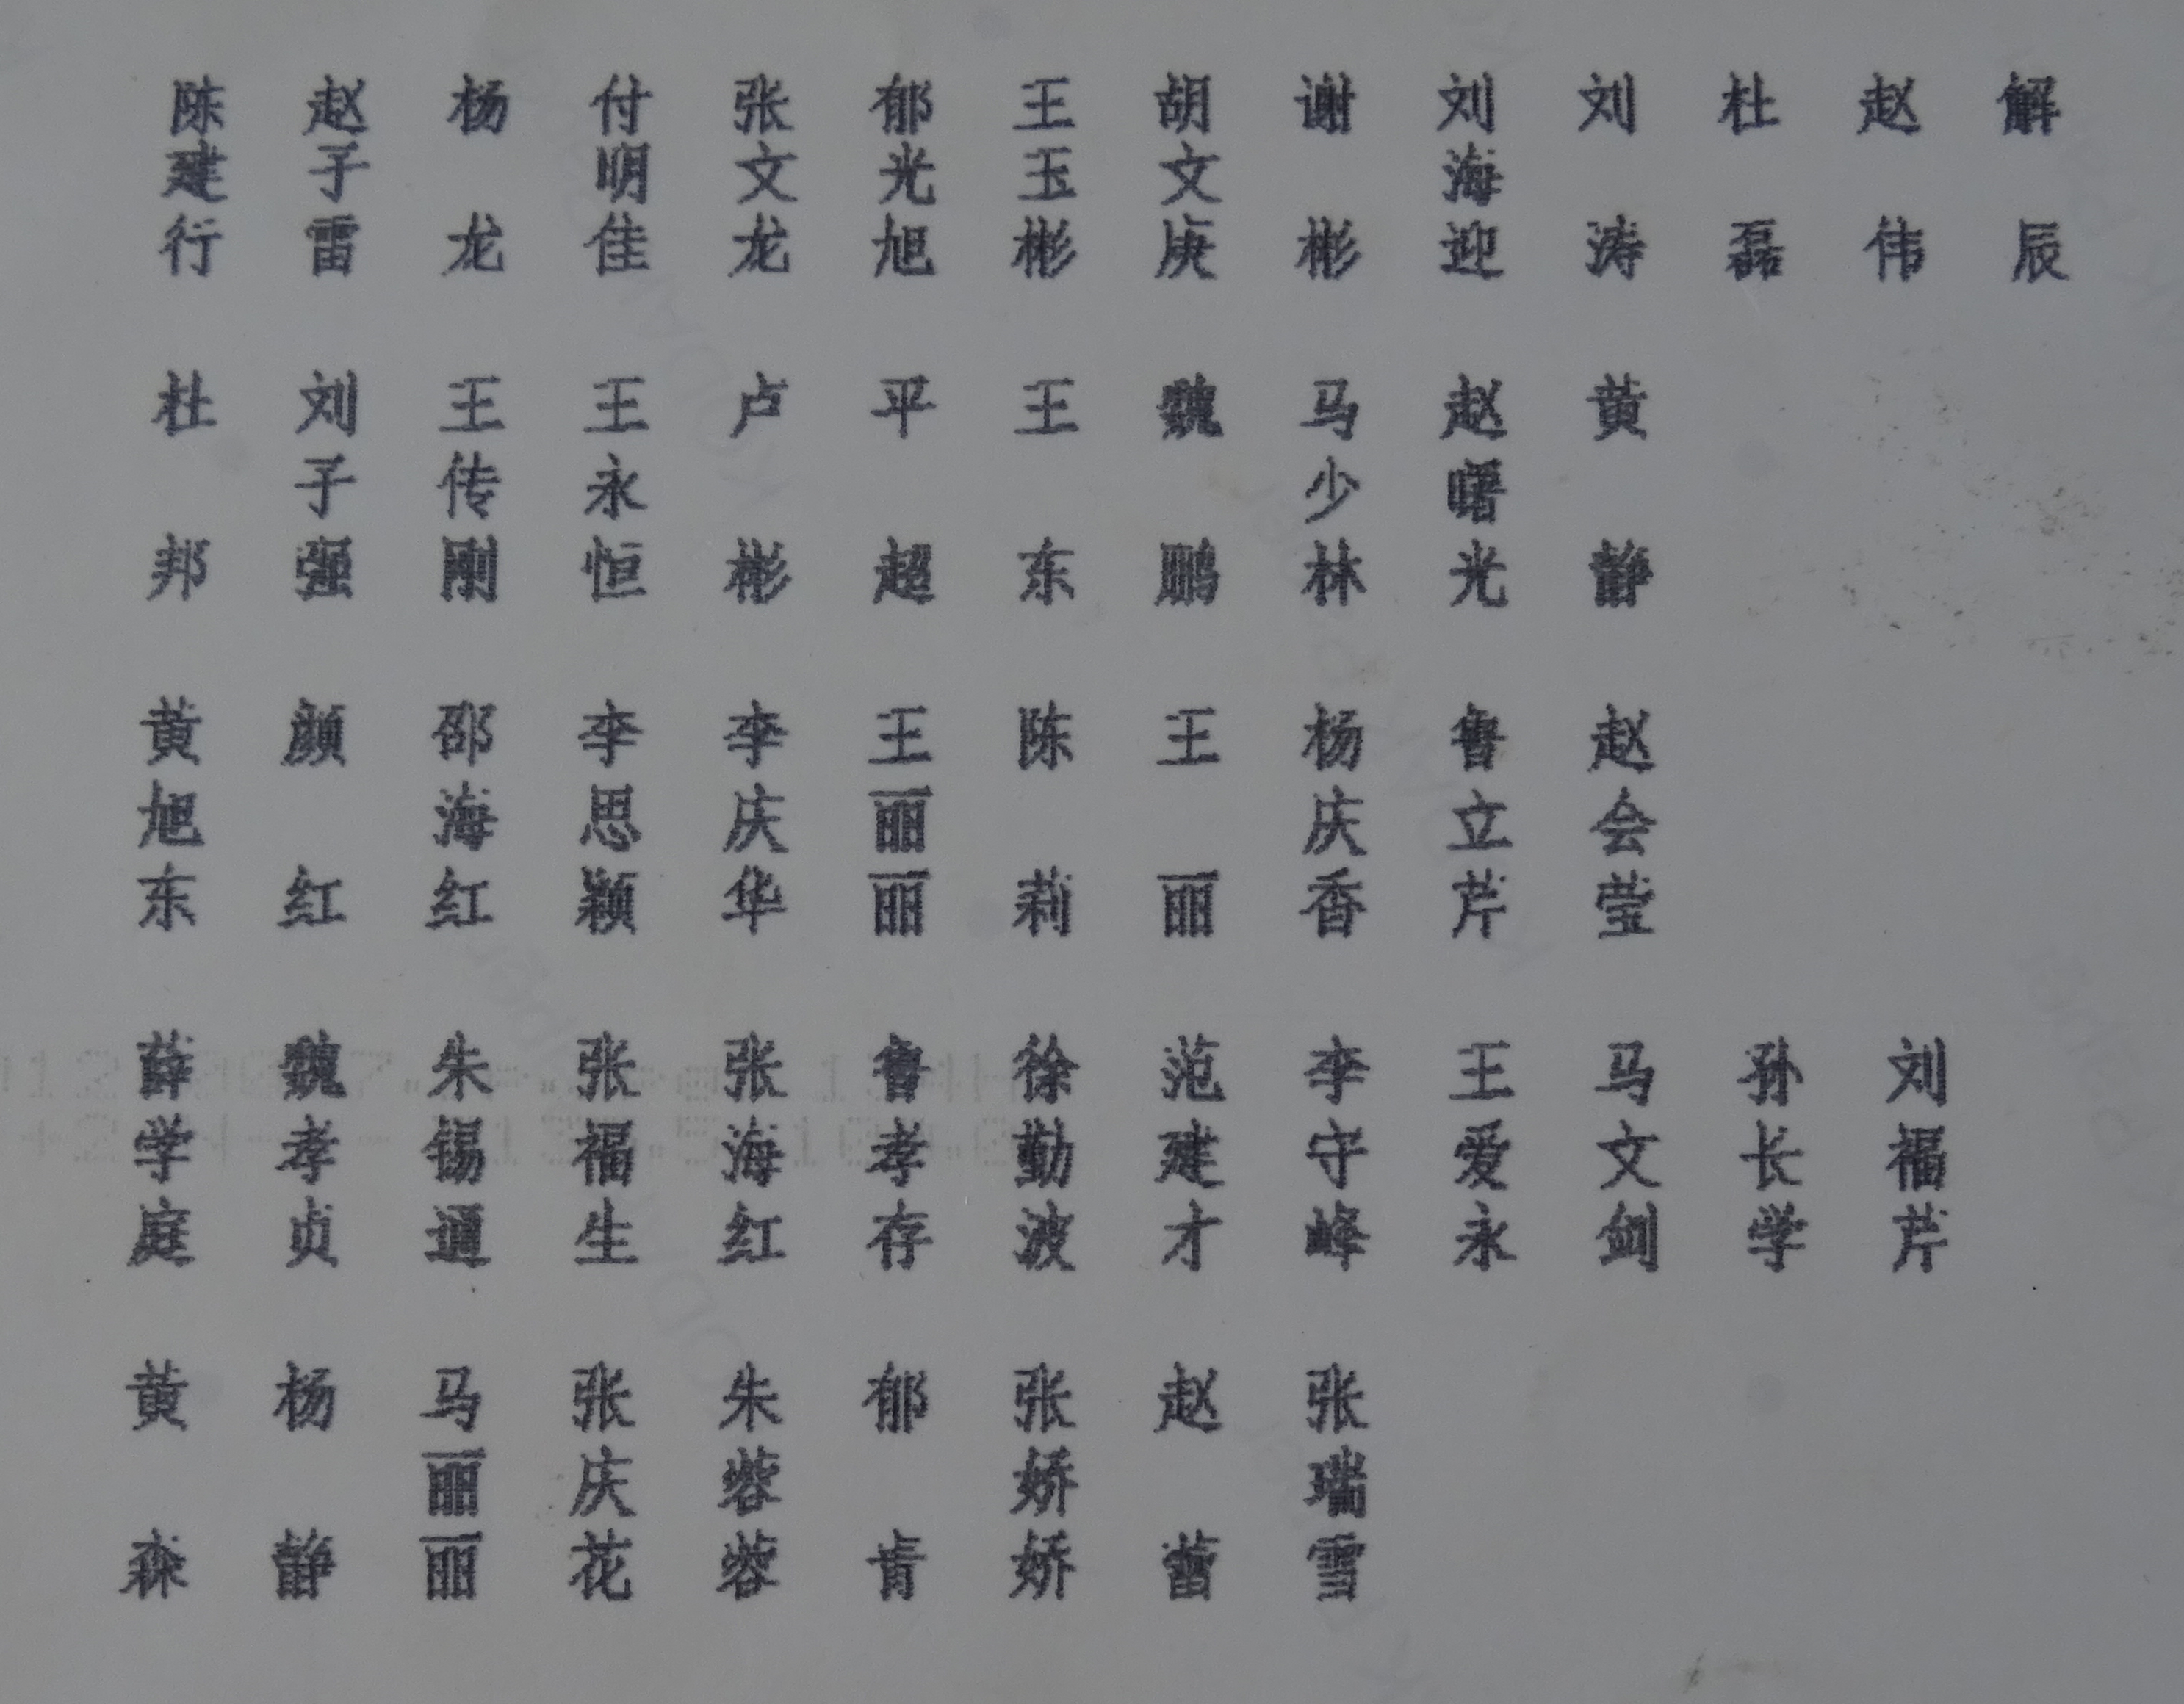 陈建行
赵子雷
杨龙
付明佳
张文龙
郁光旭
王玉彬
胡文庚
谢彬
刘海迎
刘涛
杜磊
赵伟
解辰
杜邦
刘子强
王传刚
王永恒
卢彬
平超
王东
魏鹏
马少林
赵曙光
黄静
黄旭东
颜红
邵海红
李思颖
李庆华
王丽丽
陈莉
王丽
杨庆香
鲁立芹
赵会莹
薛学庭
魏孝贞
朱锡通
张福生
张海红
鲁孝存
徐勤波
范建才
李守峰
王爱永
马文剑
孙长学
刘福芹
黄森
杨静
马丽丽
张庆花
朱蓉蓉
郁肯
张娇娇
赵蕾
张瑞雪